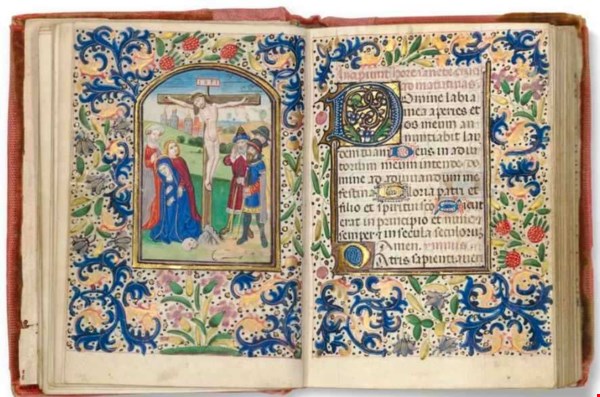 INRI
Incipiunt hore sancte cruci
matutinas
Domine labia
mea aperies et
os meum an
nuntiabit lau
dem tuam Deus in adiu
torium meum intende do
mine ad adiuvandum me
festina Gloria patri et
filio et spiritui sco Sicut
erat in principio et nunc et
semper et in secula seculorum
Amen
Patris sapientia veri